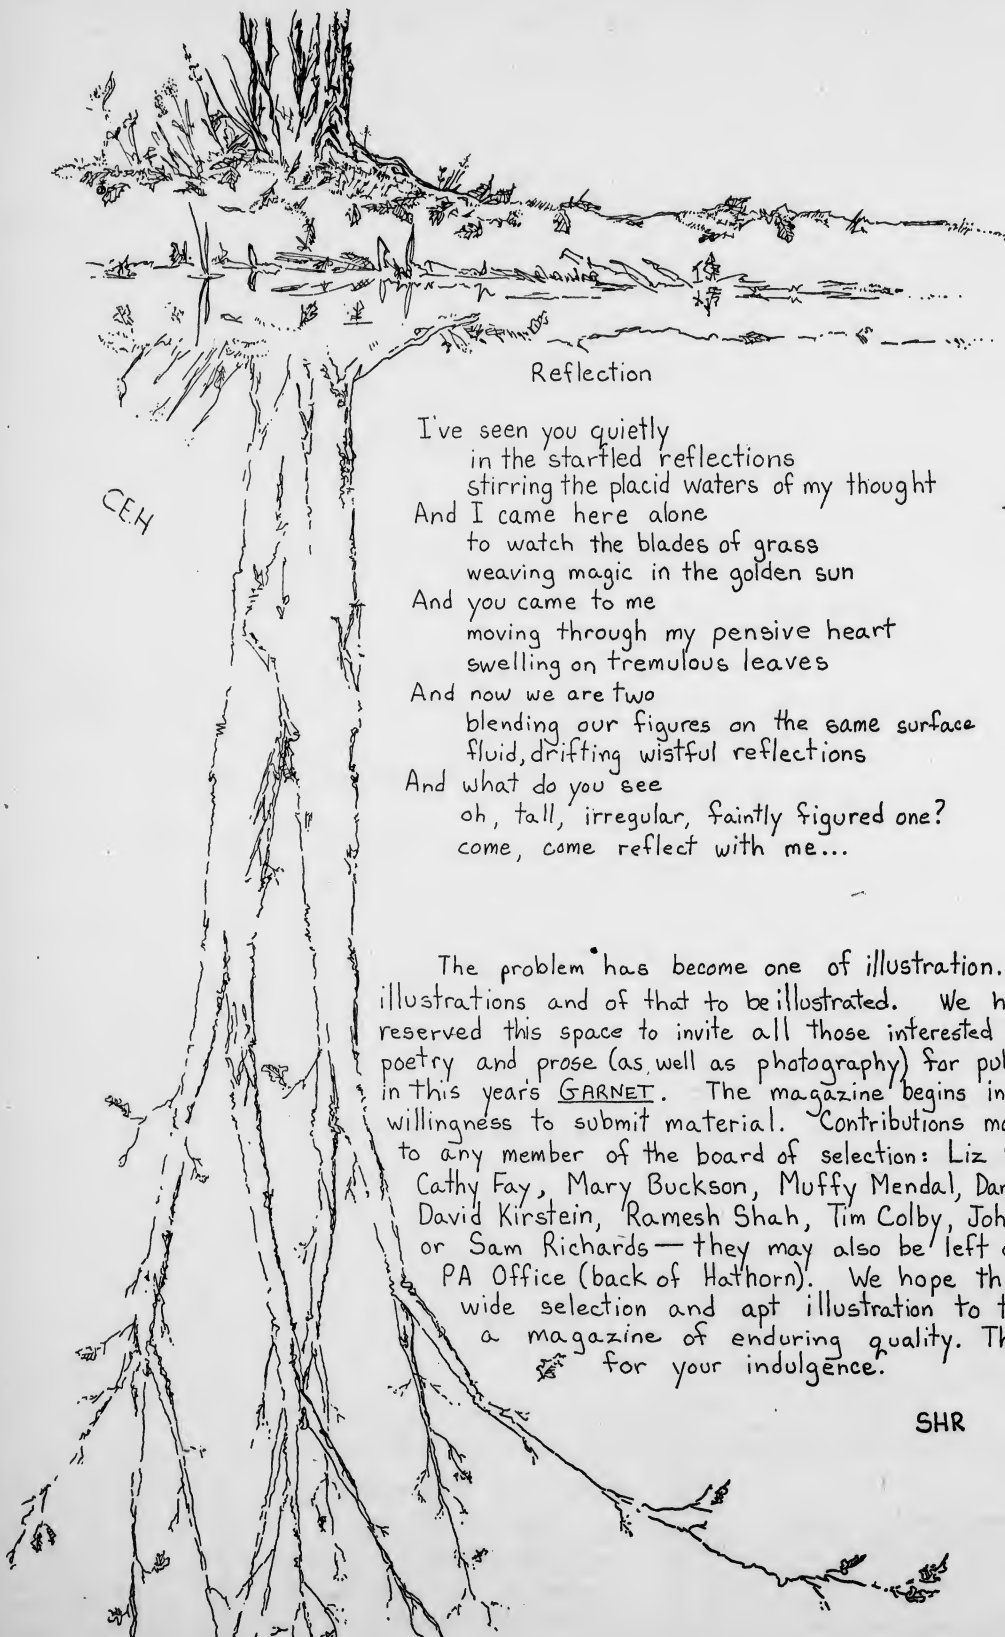 Reflection
I've seen you quietly
in the startled reflections
stirring the placid waters of my thought
And I came here alone
to watch the blades of grass
weaving magic in the golden sun
And you came to me
moving through my pensive heart
swelling on tremulous leaves
And now we are two
blending our figures on the same surface
fluid, drifting wistful reflections
And what do you see
oh, tall, irregular, faintly figured one?
come, come reflect with me...
CEH
The problem has become one of illustration.
illustrations and of that to be illustrated. We h
reserved this space to invite all those interested
poetry and prose (as well as photography) for pu
in this year's GARNET. The magazine begins in
willingness to submit material. Contributions ma
to any member of the board of selection: Liz
Cathy Fay, Mary Buckson, Muffy Mendal, Dan
David Kirstein, Ramesh Shah, Tim Colby, Joh
or Sam Richards — they may also be left
PA Office (back of Hathorn). We hope th
wide selection and apt illustration to t
a magazine of enduring quality. Th
for your indulgence.
SHR